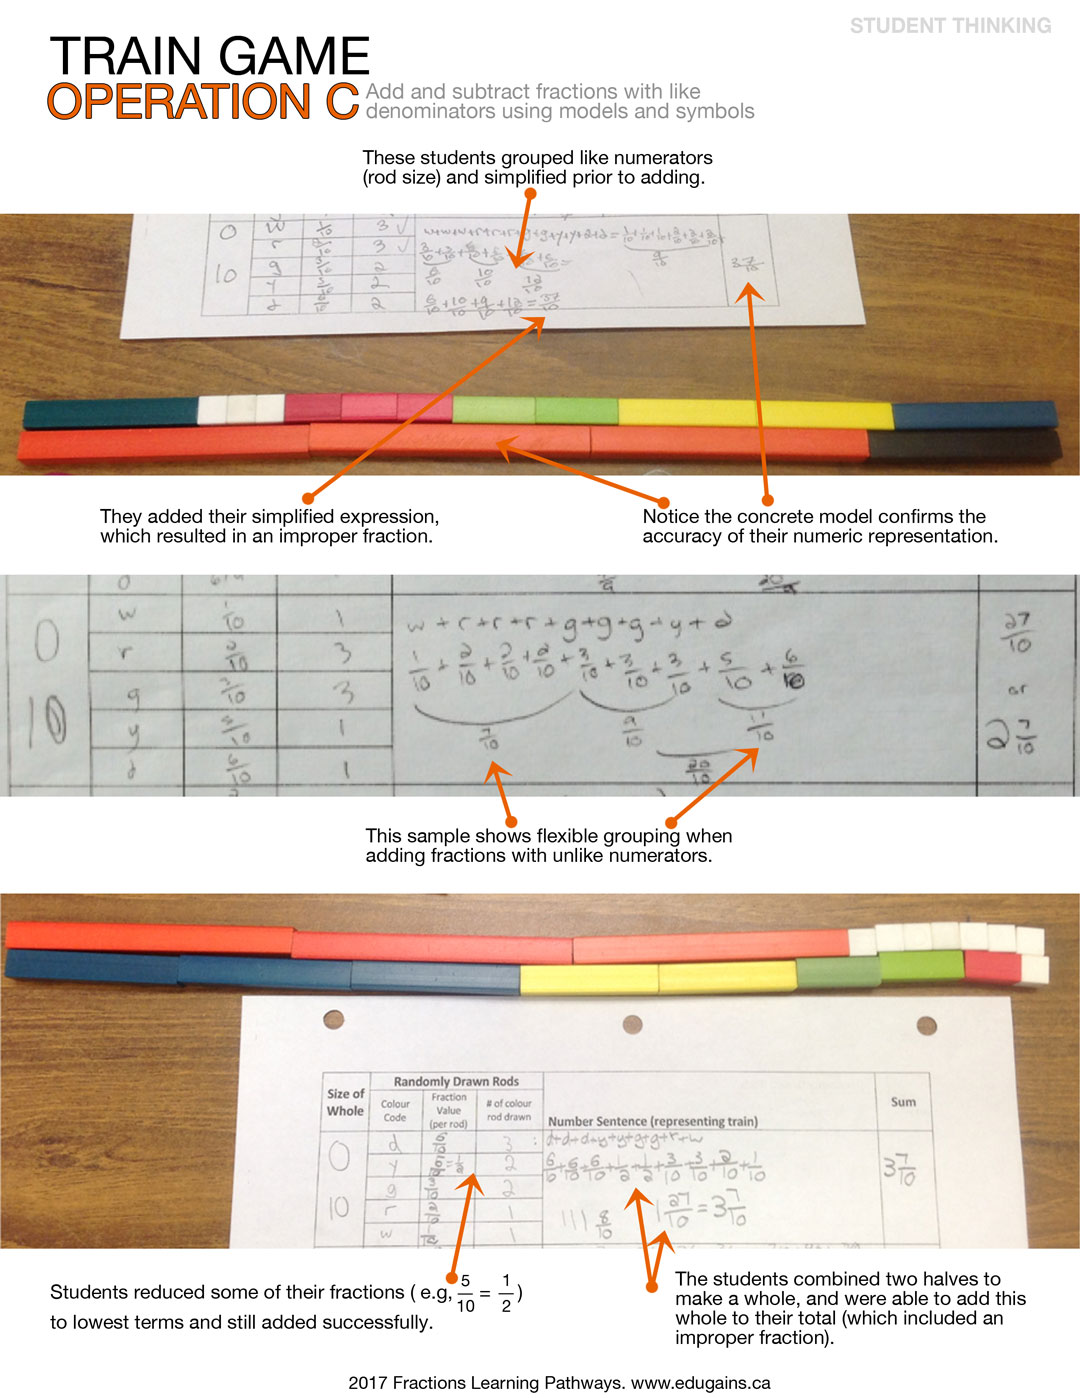 STUDENT THINKING
TRAIN GAME
OPERATION C
Add and subtract fractions with like
denominators using models and symbols
These students grouped like numerators
(rod size) and simplified prior to adding.
0
10
r 3 ✓
g 2
y 2
d 2
6/10 + 10/10 + 9/10 + 12/10 = 37/10
3 7/10
They added their simplified expression,
which resulted in an improper fraction.
Notice the concrete model confirms the
accuracy of their numeric representation.
0
10
w 1/10 1
r 2/10 3
g 3/10 3
y 5/10 1
d 6/10 1
w + r + r + r + g + g + g + y + d
1/10 + 2/10 + 2/10 + 2/10 + 3/10 + 3/10 + 3/10 + 5/10 + 6/10
7/10 9/10 11/10
20/10
27/10
or
2 7/10
This sample shows flexible grouping when
adding fractions with unlike numerators.
Size of Whole
Randomly Drawn Rods
Colour Code
Fraction Value (per rod)
# of colour rod drawn
Number Sentence (representing train)
Sum
0
10
d 3
y 2
g 2
r 1
w 1
d+d+d+y+y+g+g+r+w
6/10 + 6/10 + 6/10 + 1/2 + 1/2 + 3/10 + 3/10 + 2/10 + 1/10
1 27/10 = 3 7/10
3 7/10
Students reduced some of their fractions ( e.g, 5/10 = 1/2 )
to lowest terms and still added successfully.
The students combined two halves to
make a whole, and were able to add this
whole to their total (which included an
improper fraction).
2017 Fractions Learning Pathways. www.edugains.ca